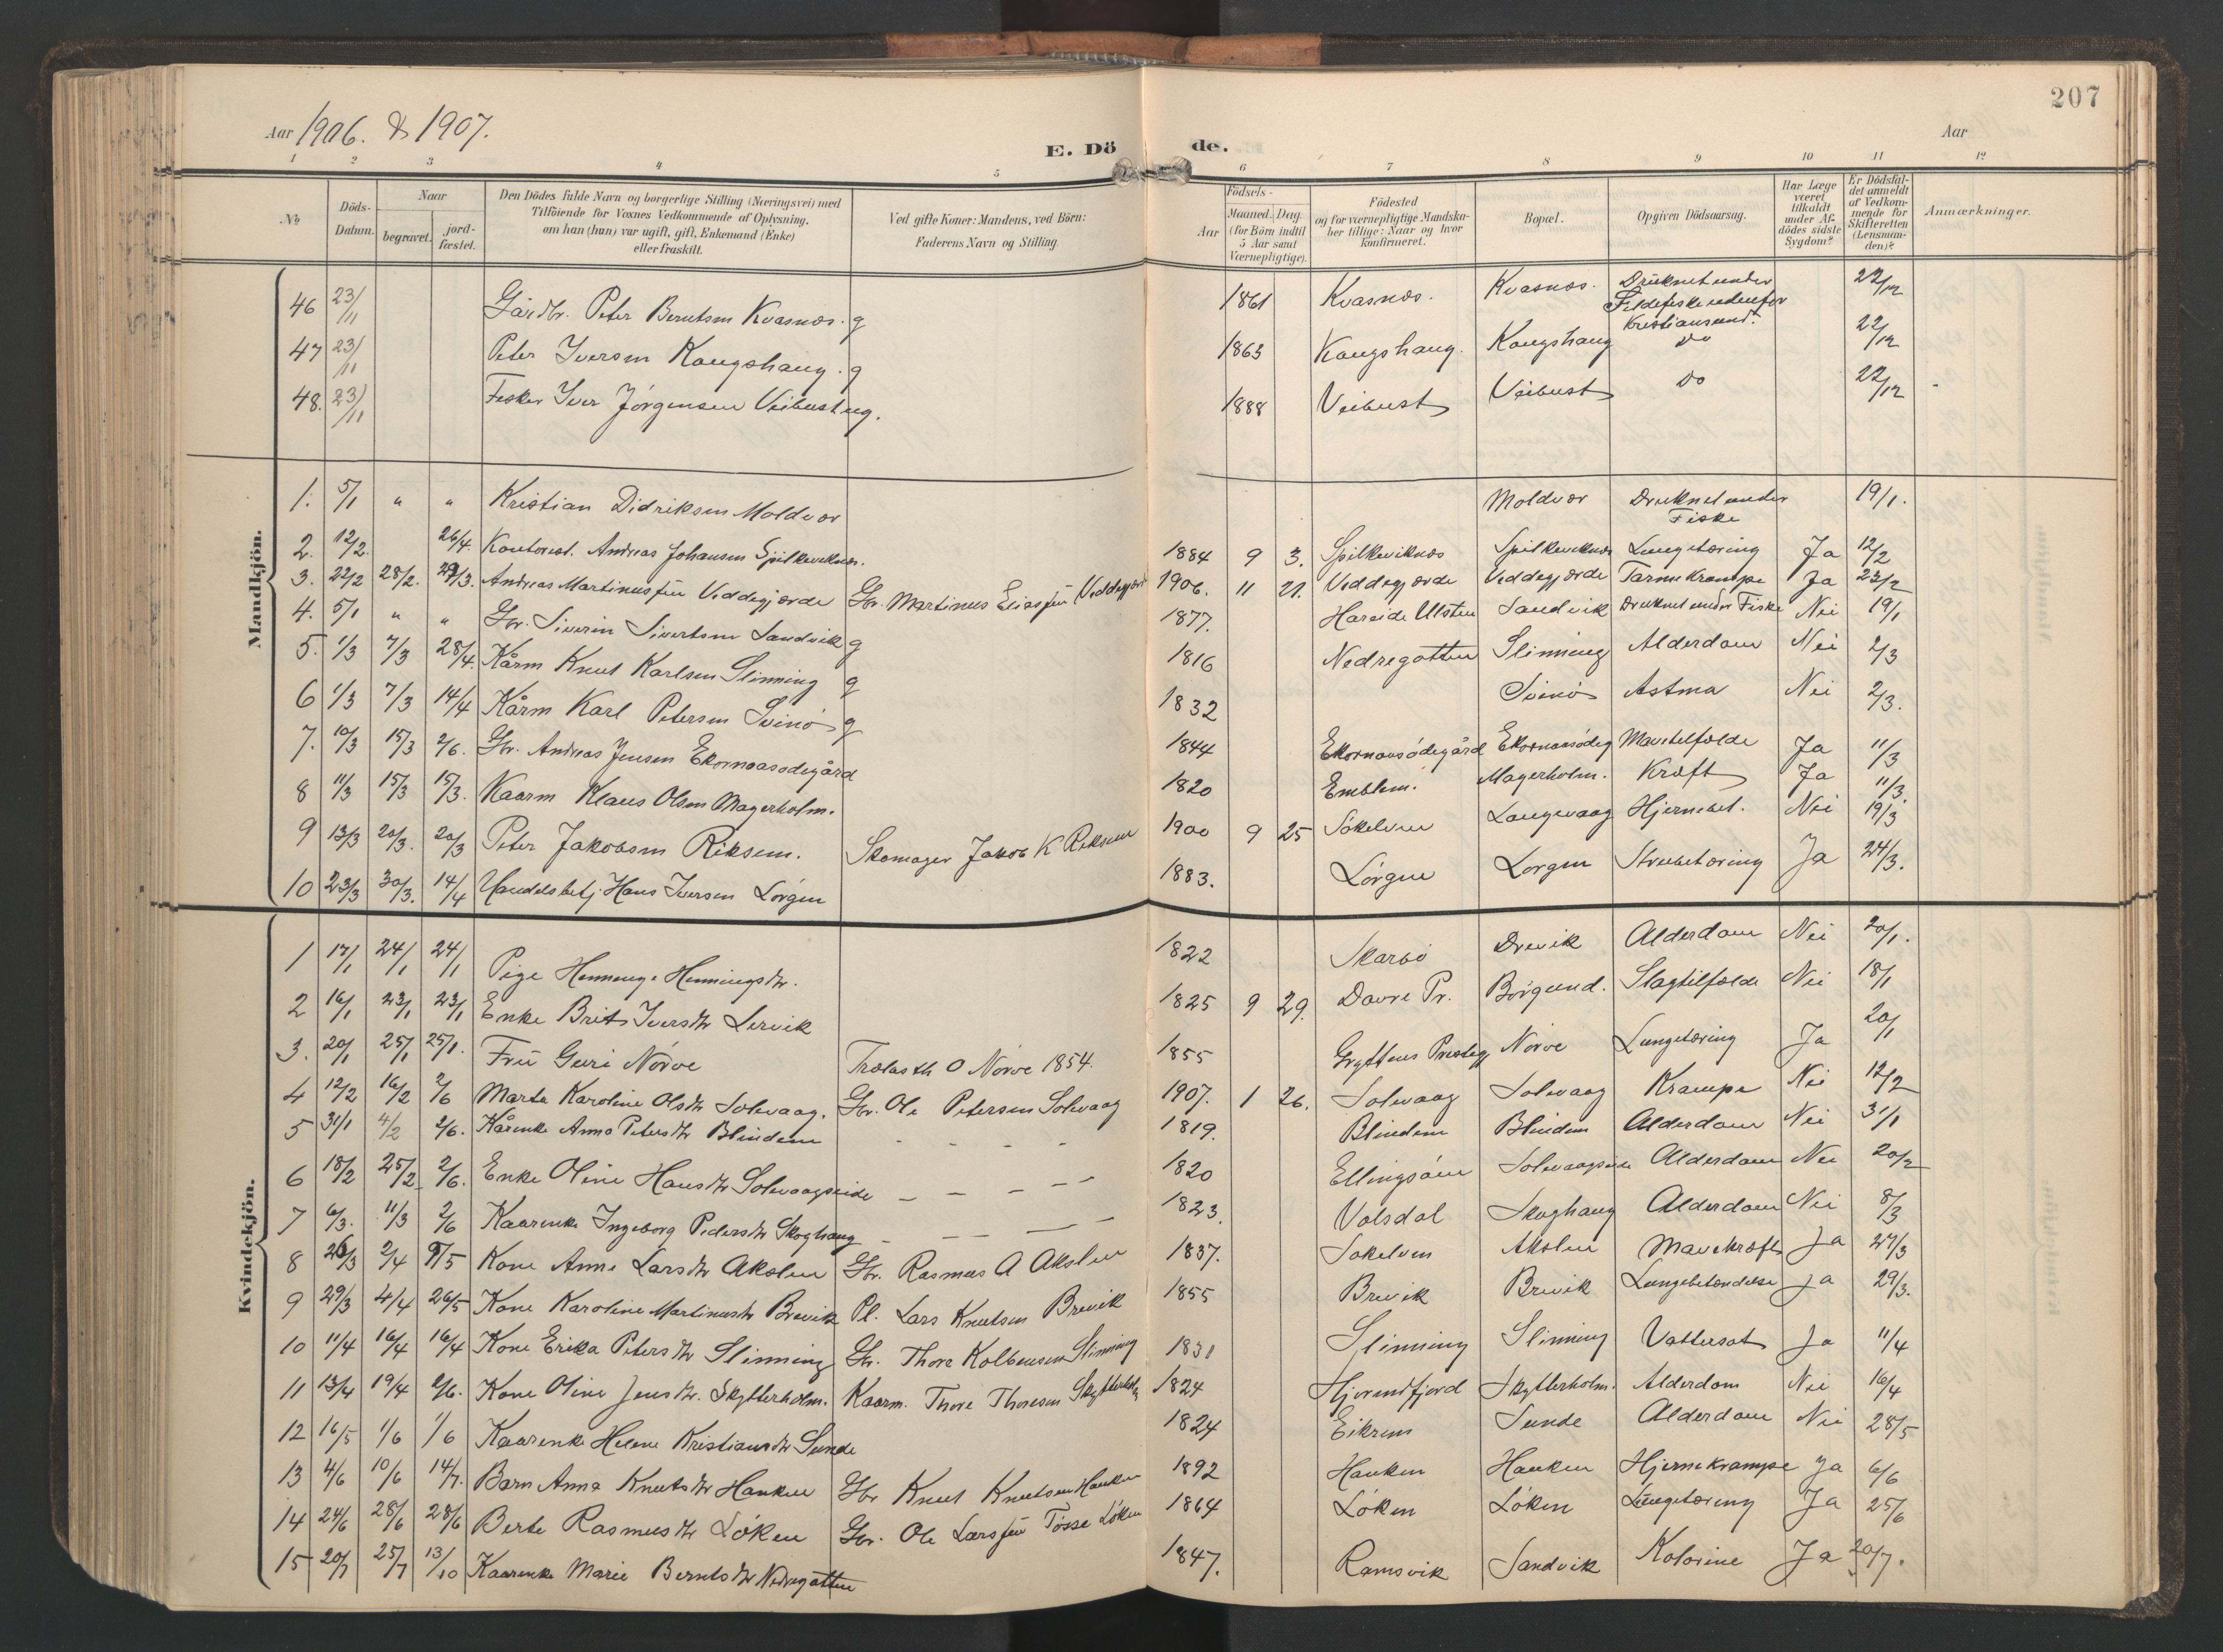 207
Aar 1906. & 1907.
Aar
E. Dö de.
1 2 3 4 5 6 7 8 9 10 11 12
No
Döds-Datum.
Naar
begravet.
jord-fæstet.
Den Dödes fulde Navn og borgerlige Stilling (Næringsvei) med
Tilföiende for Voxnes Vedkommende af Oplysning,
om han (hun) var ugift, gift, Enkemand (Enke)
eller fraskilt.
Ved gifte Koner: Mandens, ved Börn:
Faderens Navn og Stilling.
Födsels-
Aar
Maaned. Dag
(for Börn indtil
5 Aar samt
Værnepligtige).
Födested
og for værnepligtige Mandska-
ber tillige: Naar og hvor
konfirmeret.
Bopæl.
Opgiven Dödsaarsag.
Har Læge
været
tilkaldt
under Af-
dödes sidste
Sygdom?
Er Dödsfal-
det anmeldt
af Vedkom-
mende for
Skifteretten
(Lensman-
den)?
Anmærkninger.
Mandkjön.
46 23/11 Gårdbr. Peter Berntsen Kvasnes. g 1861 Kvasnes. Kvasnes. Druknet under Sildefiske udenfor Kristiansund. 22/12
47 23/11 Peter Iversen Kongshaug. g 1863 Kongshaug. Kongshaug Do 22/12
48. 23/11 Fisker Iver Jörgensen Veibust ug. 1888 Veibust Veibust Do 22/12
1. 5/1 " " Kristian Didriksen Moldvær Moldvær Druknet under Fiske 19/1.
2. 12/2. 26/4. Kontorist. Andreas Johansen Spilkeviknes. 1884 9 3. Spilkeviknes Spilkeviknes Lungetæring Ja 12/2
3. 22/2 28/2. 29/3. Andreas Martinussön Veddegjærde Gbr. Martinus Eliassön Veddegjærde 1906. 11 21. Veddegjærde Veddegjærde Tarmekrampe Ja 23/2
4. 5/1 " " Gbr. Siverin Sivertsen Sandvik g 1877. Hareide Ulsten Sandvik Druknet under Fiske Nei 19/1
5. 1/3 7/3 28/4. Kårm Knut Karlsen Slinning g 1816 Nedregotten Slinning Alderdom Nei 2/3
6 1/3 7/3 14/4 Kårm Karl Petersen Svinö g 1832 Svinö Astma Nei 2/3.
7. 10/3 15/3 2/6. Gbr. Andreas Jensen Ekornaasödegård 1844 Ekornaasödegård Ekornaasödeg Mavetilfælde Ja 11/3
8 11/3 15/3 15/3. Kaarm Klaus Olsen Magerholm. 1820 Emblem. Magerholm. Kræft Ja 11/3.
9 13/3 20/3. 20/3 Peter Jakobsen Riksem. Skomager Jakob K Riksem 1900 9 25 Sökelven Langevaag Hjernebet. Nei 19/3
10 23/3 30/3. 14/4 Handelsbetj. Hans Iversen Lorgen 1883. Lorgen Lorgen Strubetæring Ja 24/3.
Kvindekjön.
1 17/1 24/1 24/1 Pige Henninge Henningsdtr. 1822 Skarbö Drevik Alderdom Nei 20/1.
2 16/1 23/1 23/1 Enke Brit Iversdtr Lervik 1825 9 29. Dovre Pr. Borgund. Slagtilfælde Nei 18/1
3. 20/1 25/1 25/1. Frü Guri Nörve Trælasth O Nörve 1854. 1855 Gryttens Prestegj Nörve Lungetæring Ja 20/1
4 12/2 16/2 2/6 Marta Karoline Olsdtr Solevaag. Gbr. Ole Petersen Solevaag 1907. 1 26. Solevaag Solevaag Krampe Nei 12/2
5 31/1 4/2 2/6. Kårenke Anna Petersdtr Blindem 1819. Blindem Blindem Alderdom Nei 31/1
6 18/2 25/2 2/6. Enke Oline Hansdtr Solevaagseide 1820 Ellingsöen Solevaagseide Alderdom Nei 20/2
7 6/3. 11/3 2/6 Kaarenke Ingeborg Pedersdtr Skoghaug 1823. Volsdal Skoghaug Alderdom Nei 8/3
8 26/3 2/4 9/5 Kone Anne Larsdtr Akslen Gbr. Rasmus A Akslen 1837. Sökelven Akslen Mavekræft Ja 27/3
9 29/3 4/4 26/5 Kone Karoline Martinusdtr Brevik Pl. Lars Knutsen Brevik 1855 Brevik Brevik Lungebetændelse Ja 29/3.
10 11/4 16/4 16/4 Kone Erika Petersdtr Slinning Gbr. Thore Kolbensen Slinning 1831 Slinning Slinning Vattersot Ja 11/4
11 13/4 19/4 2/6. Kone Oline Jensdtr. Skytterholm. Kaarm. Thore Thoresen Skytterholm 1824 Hjörundfjord Skytterholm. Alderdom Nei 16/4
12 16/5 1/6 1/6 Kaarenke Helene Kristiansdtr Sunde 1824 Eikrem Sunde Alderdom Nei 28/5
13 4/6 10/6 14/7. Barn Anna Knutsdtr Hanken Gbr Knut Knutsen Hanken 1892 Hanken Hanken Hjernekrampe Ja 6/6
14 24/6 28/6 28/6 Berte Rasmusdtr Löken Gbr. Ole Larssön Tosse Löken 1864 Löken Löken Lungetæring Ja 25/6
15 20/7 25/7 13/10 Kaarenke Marie Berntsdtr Nedregotten 1847. Ramsvik Sandvik Kolorine Ja 20/7.